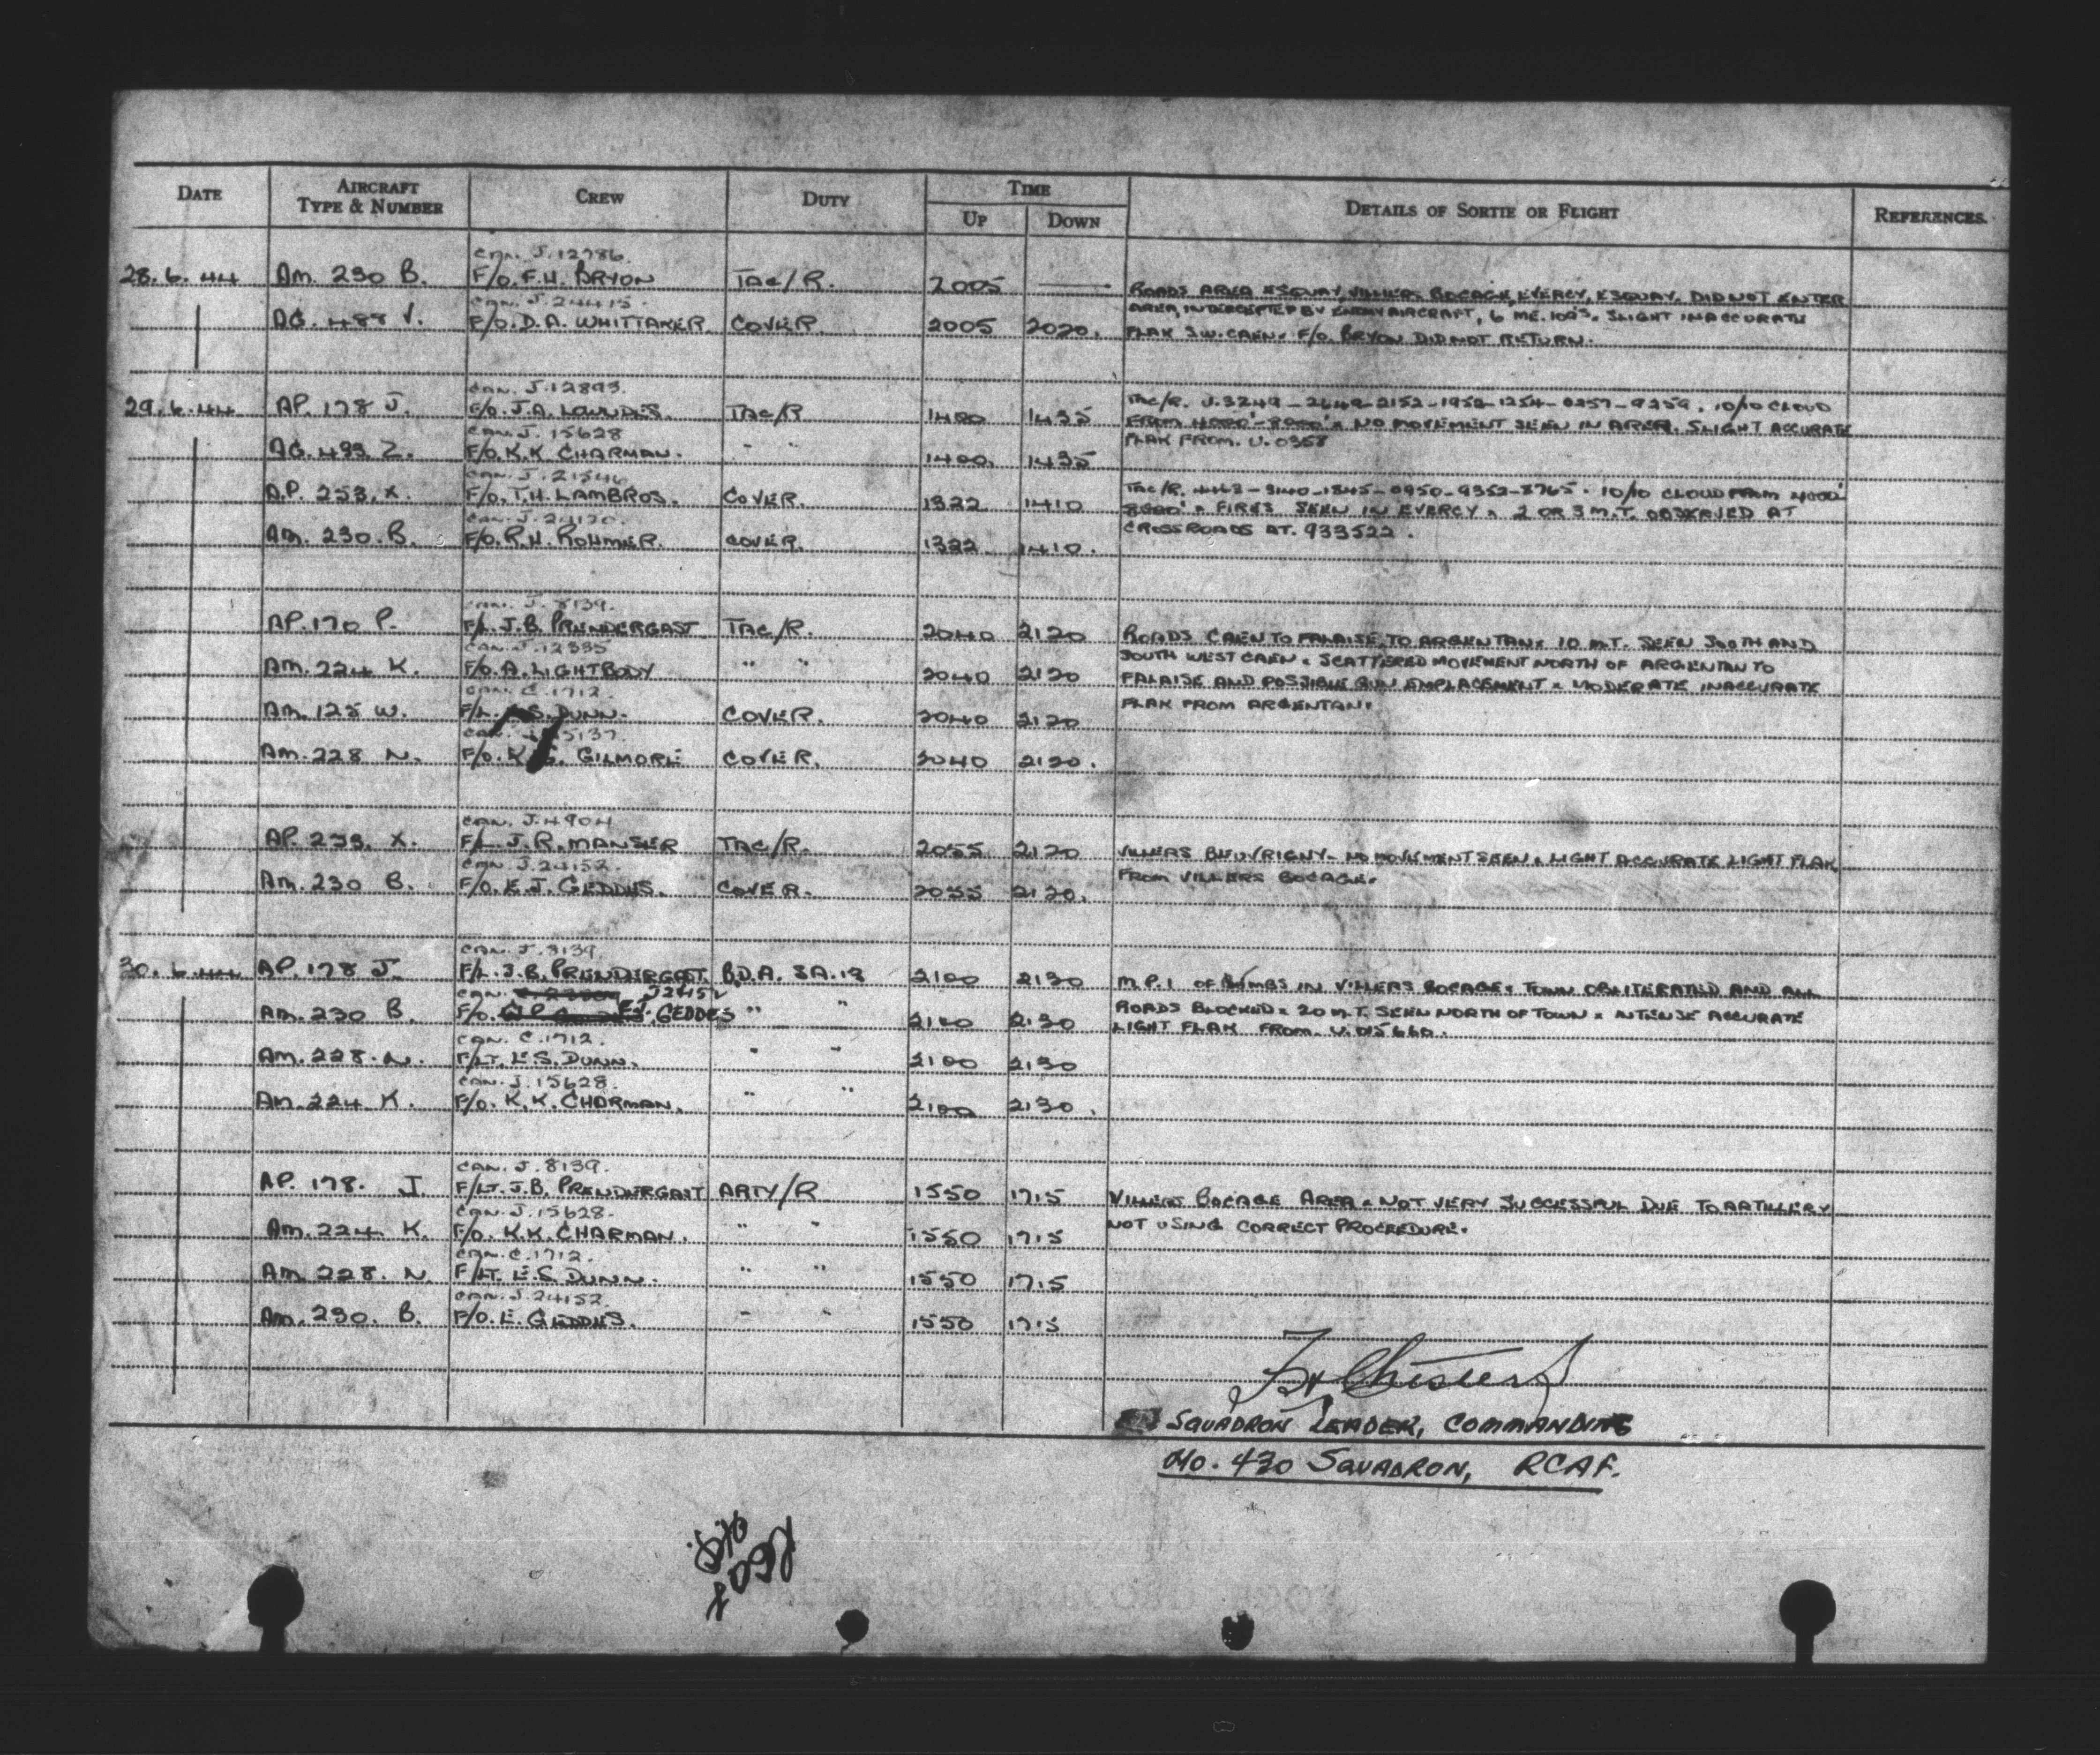 DATE AIRCRAFT TYPE & NUMBER CREW DUTY TIME UP DOWN DETAILS OF SORTIE OR FLIGHT REFERENCES.
CAN. J.12786.
28.6.44 AM. 230 B. F/O. F.H. BRYON TAC/R. 2005 —— ROADS AREA ESQUAY, VILLERS BOCAGE, EVERCY, ESQUAY. DID NOT ENTER
CAN. J.24415.
AG. 488 V. F/O. D.A. WHITTAKER. COVER. 2005 2020. AREA, INTERCEPTED BY ENEMY AIRCRAFT, 6 ME.109'S. SLIGHT INACCURATE
FLAK S.W. CAEN. F/O. BRYON DID NOT RETURN.
CAN. J.12893.
29.6.44 AP. 178 J. F/O. J.A. LOWNDES. TAC/R 1400 1435 TAC/R. U.3249-2649-2152-1952-1254-0257-9259. 10/10 CLOUD
CAN. J. 15628
FROM 4000'-8000'. NO MOVEMENT SEEN IN AREA. SLIGHT ACCURATE
AG. 493 Z. F/O. K.K. CHARMAN. " " 1400. 1435 FLAK FROM. U.0358
CAN. J. 21546
A.P. 253. X. F/O. T.H. LAMBROS. COVER. 1322 1410 TAC/R. 4463-3440-1845-0950-9352-8765. 10/10 CLOUD FROM 4000'
CAN. J. 24120.
8000'. FIRES SEEN IN EVERCY. 2 OR 3 M.T. OBSERVED AT
AM. 230. B. F/O. R.H. ROHMER. COVER. 1322 1410. CROSSROADS AT. 933522.
CAN. J. 8139.
AP. 170 P. F/L. J.B. PRENDERGAST TAC/R. 2040 2120 ROADS CAEN TO FALAISE, TO ARGENTAN. 10 M.T. SEEN SOUTH AND
CAN. J. 12335
SOUTH WEST CAEN. SCATTERED MOVEMENT NORTH OF ARGENTAN TO
AM. 224 K. F/O. A. LIGHTBODY " " 2040 2120 FALAISE AND POSSIBLE GUN EMPLACEMENT. MODERATE INACCURATE
CAN. C. 1712.
AM. 125 W. F/L. S. DUNN. COVER. 2040 2120 FLAK FROM ARGENTAN.
CAN. 5137.
AM. 228 N. F/O. K. GILMORE COVER. 2040 2120.
CAN. J.4904
AP. 253. X. F/L. J.R. MANSER TAC/R. 2055 2120 VILLERS BEUVRIGNY. NO MOVEMENT SEEN. LIGHT ACCURATE LIGHT FLAK
CAN. J.24152.
AM. 230 B. F/O. E.J. GEDDES. COVER. 2055 2120. FROM VILLERS BOCAGE.
CAN. J. 8139.
30.6.44 AP. 178 J. F/L. J.B. PRENDERGAST. B.D.A. SA.13 2100 2130 M.P.I OF BOMBS IN VILLERS BOCAGE. TOWN OBLITERATED AND ALL
CAN. J24152
AM. 230 B. F/O. E.J. GEDDES " " 2100 2130 ROADS BLOCKED. 20 M.T. SEEN NORTH OF TOWN. INTENSE ACCURATE
CAN. C.1712. LIGHT FLAK FROM. U.015660.
AM. 228. N. F/LT. E.S. DUNN. " " 2100 2130
CAN. J.15628.
AM. 224 K. F/O. K.K. CHORMAN. " " 2100 2130.
CAN. J. 8139.
AP. 178. J. F/LT. J.B. PRENDERGAST ARTY/R 1550 1715 VILLERS BOCAGE AREA. NOT VERY SUCCESSFUL DUE TO ARTILLERY
CAN. J.15628. NOT USING CORRECT PROCEEDURE.
AM. 224 K. F/O. K.K. CHARMAN. " " 1550 1715
CAN. C.1712.
AM. 228. N. F/LT. E.S. DUNN. " " 1550 1715
CAN. J.24152.
AM. 230. B. F/O. E. GEDDES. " " 1550 1715
SQUADRON LEADER, COMMANDING
NO. 430 SQUADRON, RCAF.